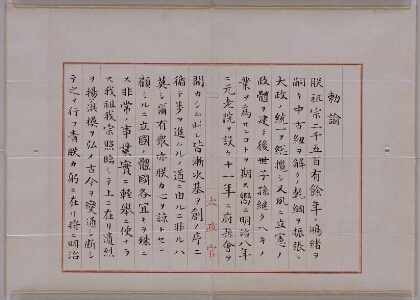 勅諭
朕祖宗二千五百有餘年ノ鴻緒ヲ
嗣キ中古紐ヲ解クノ乾綱ヲ振張シ
大政ノ統一ヲ總攬シ又夙ニ立憲ノ
政體ヲ建テ後世子孫繼クヘキノ
業ヲ為サンコトヲ期ス嚮ニ明治八年
ニ元老院ヲ設ケ十一年ニ府縣會ヲ
太政官
開カシム此レ皆漸次基ヲ創メ序ニ
循テ歩ヲ進ムルノ道ニ由ルニ非サルハ
莫シ爾有衆亦朕カ心ヲ諒トセン
顧ミルニ立國ノ體國各宜キヲ殊ニ
ス非常ノ事業實ニ輕擧ニ便ナラ
ス我祖我宗照臨シテ上ニ在リ遺烈
ヲ揚ケ洪模ヲ弘メ古今ヲ變通シ斷シ
テ之ヲ行フ責朕カ躬ニ在リ將ニ明治